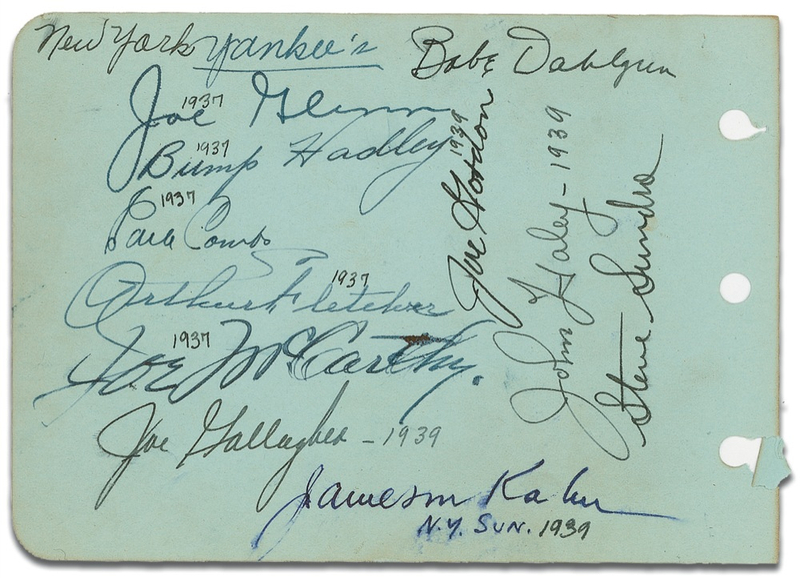 New York Yankee's
Babe Dahlgren
Joe Glenn
1937
Bump Hadley
1937
Earle Combs
1937
Arthur Fletcher
1937
Joe McCarthy.
1937
Joe Gallagher - 1939
Joe Gordon 1939
John Haley - 1939
Steve Sundra
Jameson Kahn
N.Y. SUN. 1939